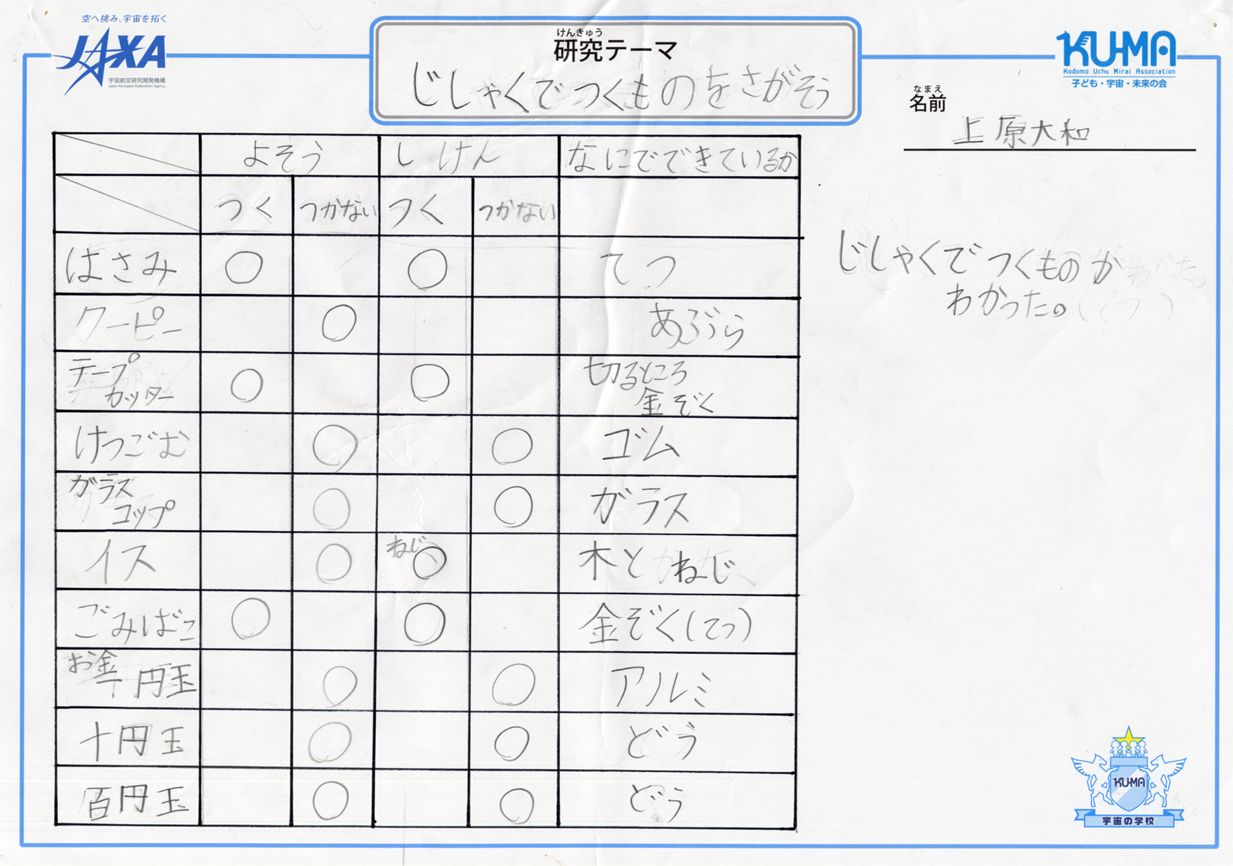 空へ挑み、宇宙を拓く
JAXA
宇宙航空研究開発機構
Japan Aerospace Exploration Agency
けんきゅう
研究テーマ
じしゃくでつくものをさがそう
KU-MA
Kodomo Uchu Mirai Association
子ども・宇宙・未来の会
なまえ
名前
上原大和
よそう しけん なにでできているか
つく つかない つく つかない
はさみ ○ ○ てつ
クーピー ○ あぶら
テープ
カッター ○ ○ 切るところ
金ぞく
けつごむ ○ ○ ゴム
ガラス
コップ ○ ○ ガラス
イス ○ ねじ ○ 木と ねじ
ごみばこ ○ ○ 金ぞく(てつ)
お金
一円玉 ○ ○ アルミ
十円玉 ○ ○ どう
百円玉 ○ ○ どう
じしゃくでつくものが
わかった。(てつ)
KU-MA
宇宙の学校